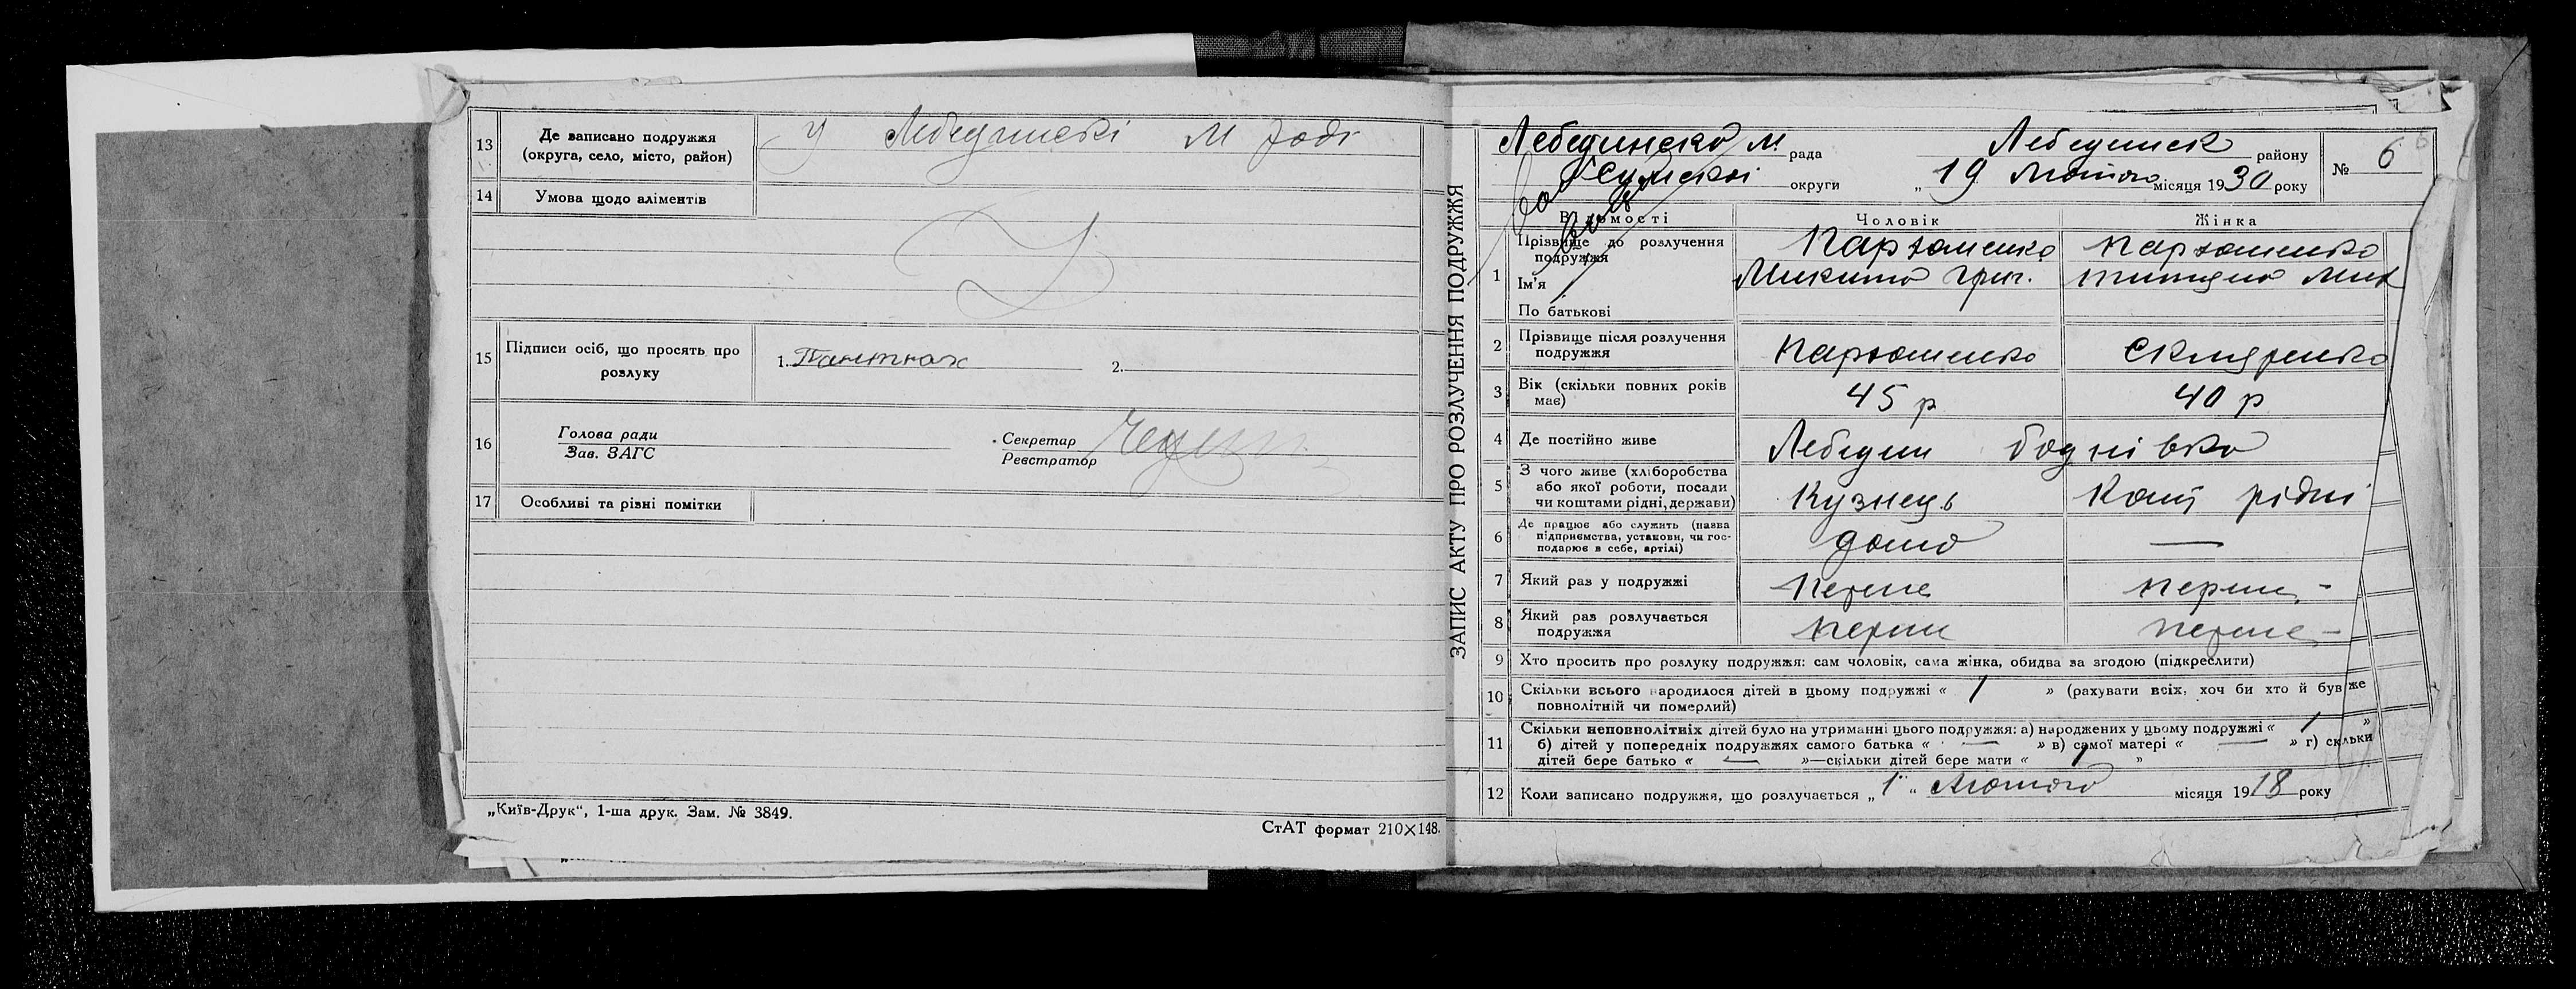 13 Де записано подружжя (округа, село, місто, район) У Лебединські М раді
14 Умова щодо аліментів
15 Підписи осіб, що просять про розлуку 1. 2.
16 Голова ради
Зав. ЗАГС
Секретар
Реєстратор
17 Особливі та різні помітки
„Київ-Друк“, 1-ша друк. Зам. № 3849.
СтАТ формат 210×148.
ЗАПИС АКТУ ПРО РОЗЛУЧЕННЯ ПОДРУЖЖЯ
Лебединска М. рада Лебединск району № 6
Сумскої округи „ 19 Лютого місяця 1930 року
Відомості Чоловік Жінка
1 Прізвище до розлучення подружжя Пархоменко Пархоменко
Ім'я Микита Григ. Титяна Мих
По батькові
2 Прізвище після розлучення подружжя Пархоменко Скляренко
3 Вік (скільки повних років має) 45 р 40 р
4 Де постійно живе Лебедин
5 З чого живе (хліборобства або якої роботи, посади чи коштами рідні, держави) Кузнець Кошт рідні
6 Де працює або служить (назва підприємства, установи, чи господарює в себе, артілі) дома —
7 Який раз у подружжі Перше перше -
8 Який раз розлучається подружжя перше перше -
9 Хто просить про розлуку подружжя: сам чоловік, сама жінка, обидва за згодою (підкреслити)
10 Скільки всього народилося дітей в цьому подружжі « 1 » (рахувати всіх, хоч би хто й був же
повнолітній чи померлий)
11 Скільки неповнолітніх дітей було на утриманні цього подружжя: а) народжених у цьому подружжі « 1 »
б) дітей у попередніх подружжях самого батька « — » в) самої матері « — » г) скільки
дітей бере батько « — »—скільки дітей бере мати « 1 »
12 Коли записано подружжя, що розлучається „ 1 “ Лютого місяця 1918 року